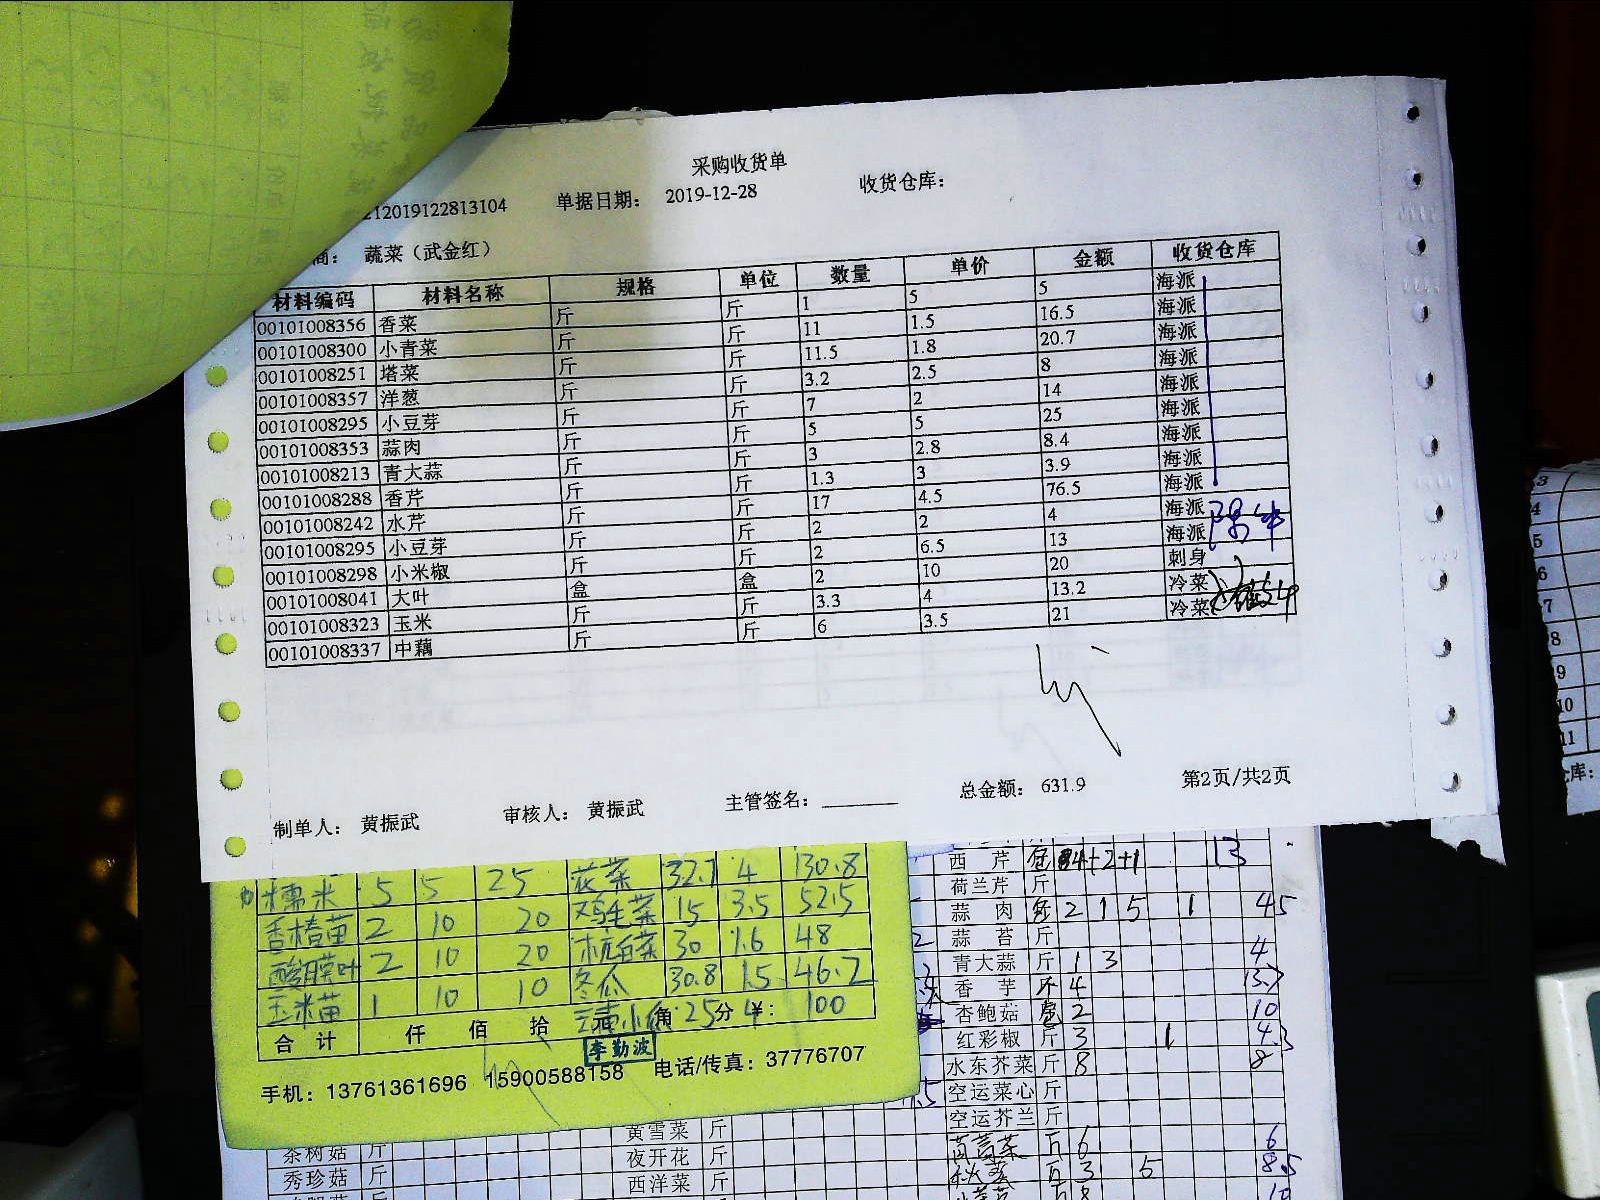 采购收货单
212019122813104 单据日期： 2019-12-28 收货仓库：
商： 蔬菜（武金红）
材料编码 材料名称 规格 单位 数量 单价 金额 收货仓库
00101008356 香菜 斤 斤 1 5 5 海派
00101008300 小青菜 斤 斤 11 1.5 16.5 海派
00101008251 塔菜 斤 斤 11.5 1.8 20.7 海派
00101008357 洋葱 斤 斤 3.2 2.5 8 海派
00101008295 小豆芽 斤 斤 7 2 14 海派
00101008353 蒜肉 斤 斤 5 5 25 海派
00101008213 青大蒜 斤 斤 3 2.8 8.4 海派
00101008288 香芹 斤 斤 1.3 3 3.9 海派
00101008242 水芹 斤 斤 17 4.5 76.5 海派
00101008295 小豆芽 斤 斤 2 2 4 海派
00101008298 小米椒 斤 斤 2 6.5 13 海派
00101008041 大叶 盒 盒 2 10 20 刺身
00101008323 玉米 斤 斤 3.3 4 13.2 冷菜
00101008337 中藕 斤 斤 6 3.5 21 冷菜
制单人： 黄振武 审核人： 黄振武 主管签名： 总金额： 631.9 第2页/共2页
糯米 5 5 25 花菜 32.7 4 130.8
香椿苗 2 10 20 鸡毛菜 15 3.5 52.5
酸膜叶 2 10 20 杭白菜 30 1.6 48
玉米苗 1 10 10 冬瓜 30.8 1.5 46.2
合计 仟 佰 拾 元 角 25 分 4 ¥： 100
李勤波
手机：13761361696 15900588158 电话/传真：37776707
西芹 4+2+1 13
荷兰芹 斤
蒜肉 2 1 5 1 45
蒜苔 斤
青大蒜 斤 1 3 4
香芋 斤 4 13.7
杏鲍菇 2 10
红彩椒 斤 3 1 4.3
水东芥菜 斤 8 8
空运菜心 斤
空运芥兰 斤
茼蒿菜 斤 6 6
3 5 8.5
茶树菇 斤 黄雪菜 斤
秀珍菇 斤 夜开花 斤
西洋菜 斤